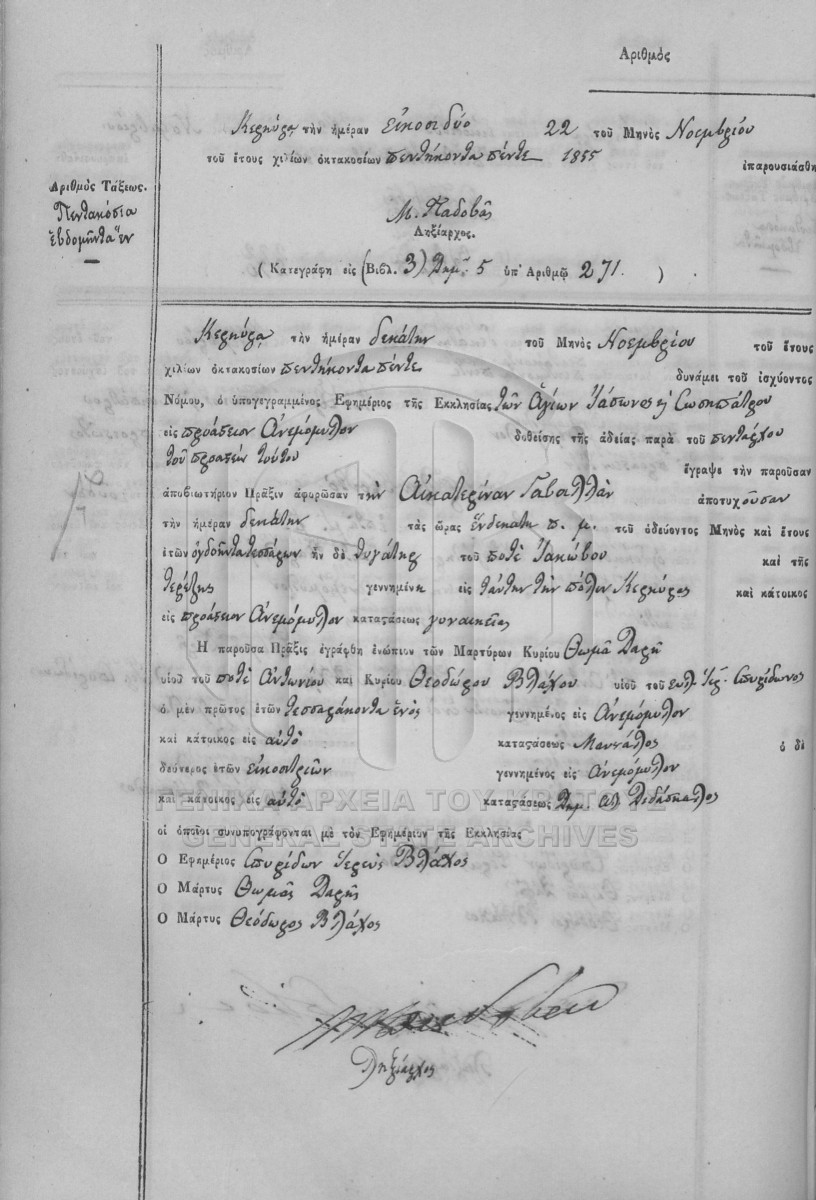 Ἀριθμὸς
Κερκύρᾳ τὴν ἡμέραν εἰκοσιδύο 22 τοῦ Μηνὸς Νοεμβρίου
τοῦ ἔτους χιλίων ὀκτακοσίων πεντήκοντα πέντε 1855
ἐπαρουσιάσθη
Ἀριθμὸς Τάξεως.
Πεντακόσια
ἑβδομῆντα ἓν
Μ. Παδοβᾶς
Ληξίαρχος.
( Κατεγράφη εἰς (Βιβλ. 3) Δημ. 5 ὑπ' Ἀριθμῷ 271. )
Κερκύρᾳ τὴν ἡμέραν δεκάτην τοῦ Μηνὸς Νοεμβρίου τοῦ ἔτους
χιλίων ὀκτακοσίων πεντήκοντα πέντε
δυνάμει τοῦ ἰσχύοντος
Νόμου, ὁ ὑπογεγραμμένος Ἐφημέριος τῆς Ἐκκλησίας τῶν Ἁγίων Ἰάσωνος ϗ Σωσιπάτρου
εἰς προάστειον Ἀνεμόμυλον δοθείσης τῆς ἀδείας παρὰ τοῦ πεντάρχου
τοῦ προαστείου τούτου
ἔγραψε τὴν παροῦσαν
ἀποβιωτήριον Πρᾶξιν ἀφορῶσαν τὴν Αἰκατερίναν ἀποτυχοῦσαν
τὴν ἡμέραν δεκάτην τὰς ὥρας ἕνδεκατη π. μ. τοῦ ὁδεύοντος Μηνὸς καὶ ἔτους
ἐτῶν ὀγδοῆντατεσσάρων ἦν δὲ θυγάτηρ τοῦ ποτὲ Ἰακώβου καὶ τῆς
τερέζης γεννημένη εἰς ταύτην τὴν πόλιν Κερκύρας καὶ κάτοικος
εἰς προάστειον Ἀνεμόμυλον καταστάσεως γυναικείας
Ἡ παροῦσα Πρᾶξις ἐγράφθη ἐνώπιον τῶν Μαρτύρων Κυρίου Θωμᾶ Δαρῆ
υἱοῦ τοῦ ποτὲ Ἀντωνίου καὶ Κυρίου Θεοδώρου Βλάχου υἱοῦ τοῦ Σπυρίδωνος
ὁ μὲν πρῶτος ἐτῶν τεσσαράκοντα ἑνὸς γεννημένος εἰς Ἀνεμόμυλον
καὶ κάτοικος εἰς αὐτὸ καταστάσεως ὁ δὲ
δεύτερος ἐτῶν εἰκοσιτριῶν γεννημένος εἰς Ἀνεμόμυλον
καὶ κάτοικος εἰς αὐτὸ καταστάσεως Δημ. Διδάσκαλος
οἱ ὁποῖοι συνυπογράφονται μὲ τὸν Ἐφημέριον τῆς Ἐκκλησίας
Ὁ Ἐφημέριος Σπυρίδων Ἱερεὺς Βλάχος
Ὁ Μάρτυς Θωμᾶς Δαρῆς
Ὁ Μάρτυς Θεόδωρος Βλάχος
Ληξίαρχος
ΓΕΝΙΚΑ ΑΡΧΕΙΑ ΤΟΥ ΚΡΑΤΟΥΣ
GENERAL STATE ARCHIVES